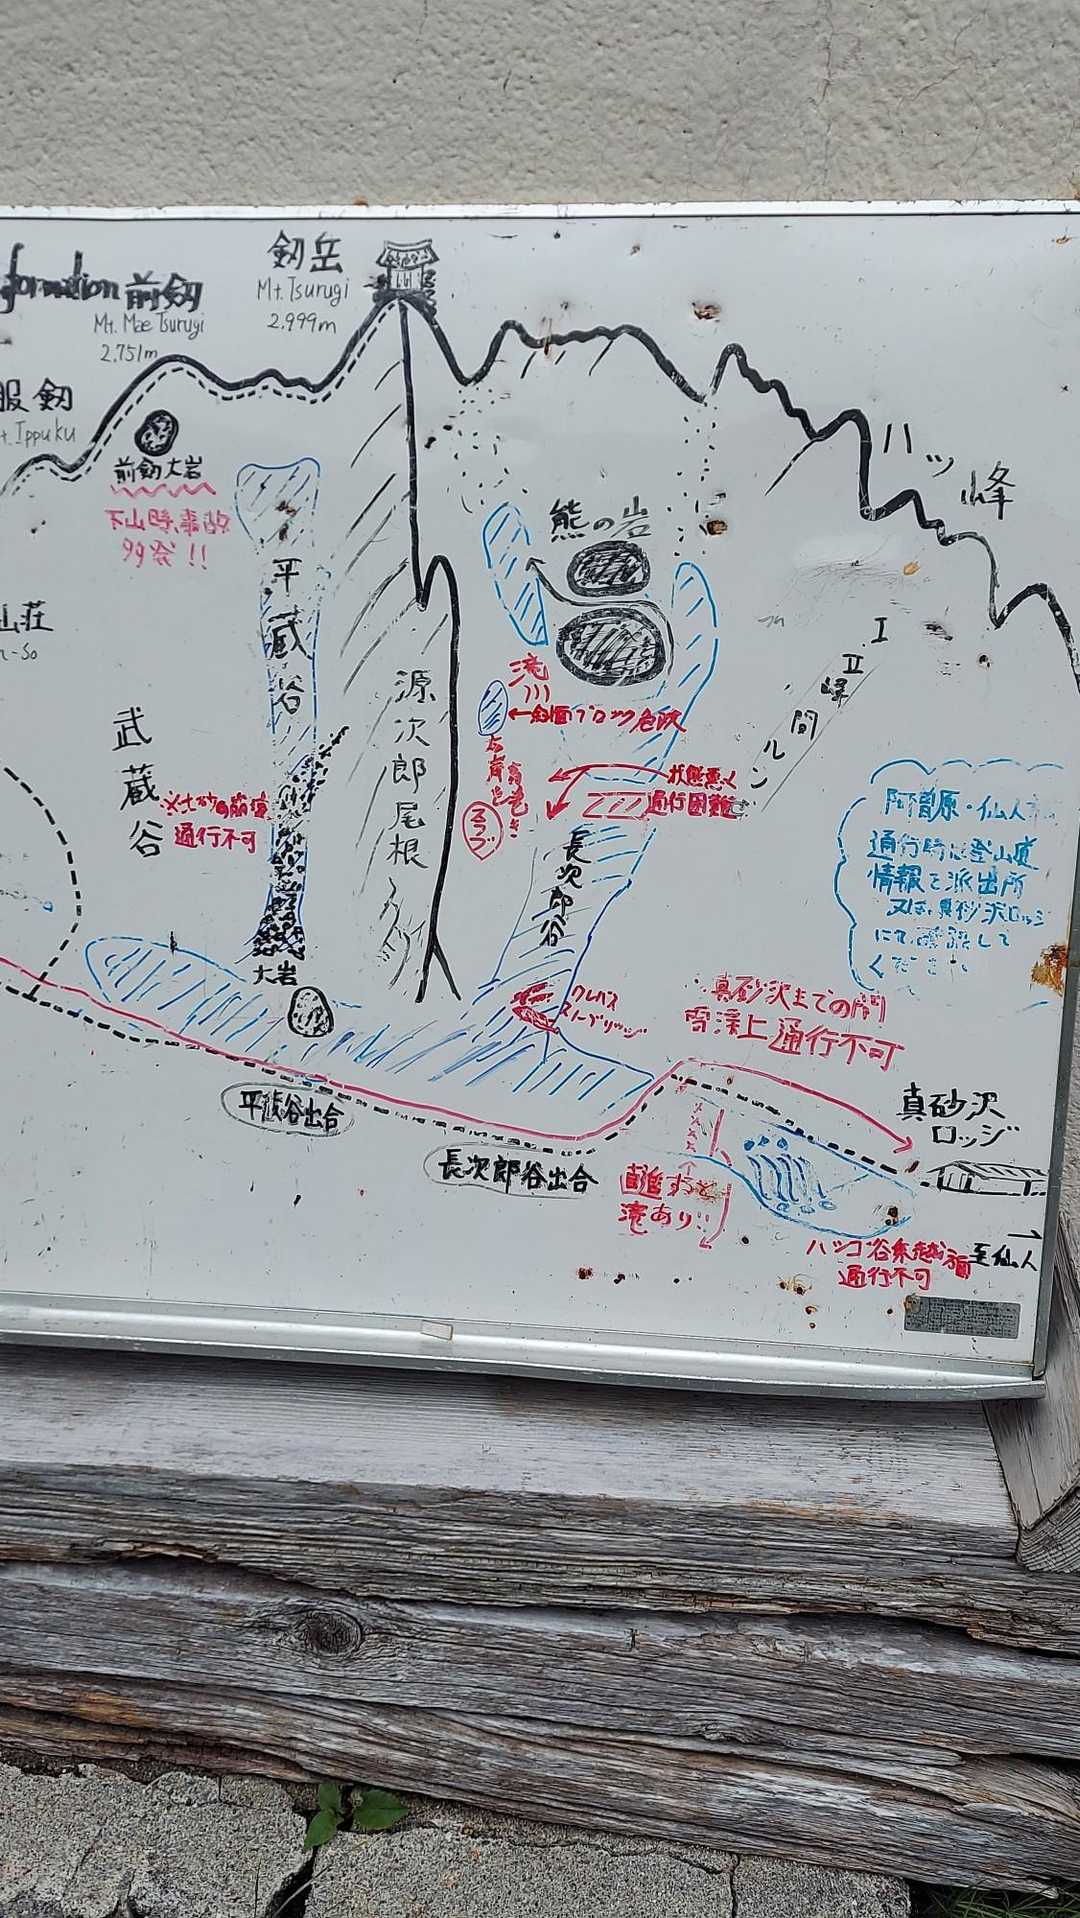 formation
前劔
Mt. Mae Tsurugi
2,751m
劔岳
Mt. Tsurugi
2,999m
服劔
t. Ippuku
前劔大岩
下山時、事故
多発!!
山荘
n-so
平蔵谷
武蔵谷
※土砂の崩壊
通行不可
源次郎尾根
熊の岩
滝
ブロック危険
高巻き
状態悪く
通行困難
長次郎谷
クレバス
スノーブリッジ
ハッ峰
Ⅰ
Ⅱ
峰間ルン
阿曽原・仙人
通行時は登山道
情報を派出所
又は、真砂沢ロッジ
にて確認して
ください
大岩
平蔵谷出合
長次郎谷出合
真砂沢までの間
雪渓上通行不可
真砂沢
ロッジ
直進すると
滝あり!!
ハシゴ谷乗越方面
通行不可
至仙人